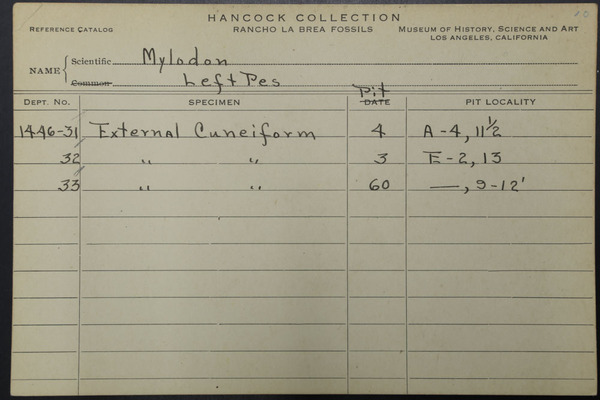 HANCOCK COLLECTION
REFERENCE CATALOG RANCHO LA BREA FOSSILS MUSEUM OF HISTORY, SCIENCE AND ART
LOS ANGELES, CALIFORNIA
NAME Scientific Mylodon
Common Left Pes
Pit
DEPT. NO. SPECIMEN DATE PIT LOCALITY
1446-31 External Cuneiform 4 A-4, 11½
32 " " 3 E-2, 13
33 " " 60 —, 9-12'